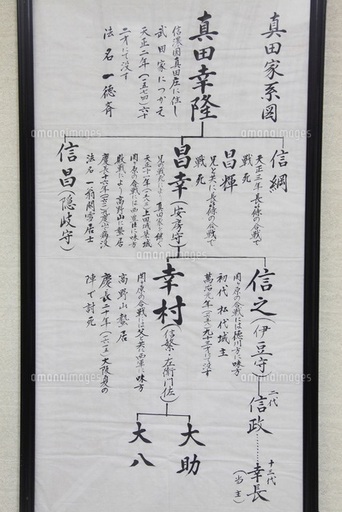 真田家系図
真田幸隆
信濃国真田庄に住し
武田家につかえ
天正二年(一五七四)六十
二才にて没す
法名一徳斉
信綱
天正三年長篠の合戦で
戦死
昌輝
兄と共に長篠の合戦で
戦死
昌幸(安房守)
兄の戦死により真田家を継ぐ
天正十一年(一五八三)上田城築城
関ヶ原の合戦には西軍に味方
敗戦により高野山に蟄居
慶長十六年(一六一一)九度山で病没
法名一翁閑雪居士
信昌(隠岐守)
信之(伊豆守)
関ヶ原の合戦には徳川方に味方
初代松代城主
萬治元年(一六五八)九十三才にて没す
二代
信政
十三代
幸長
(当主)
幸村(信繁・左衛門佐)
関ヶ原の合戦には父と共に西軍に味方
高野山蟄居
慶長二十年(一六一五)大阪夏の
陣で討死
大助
大八
amanaimages